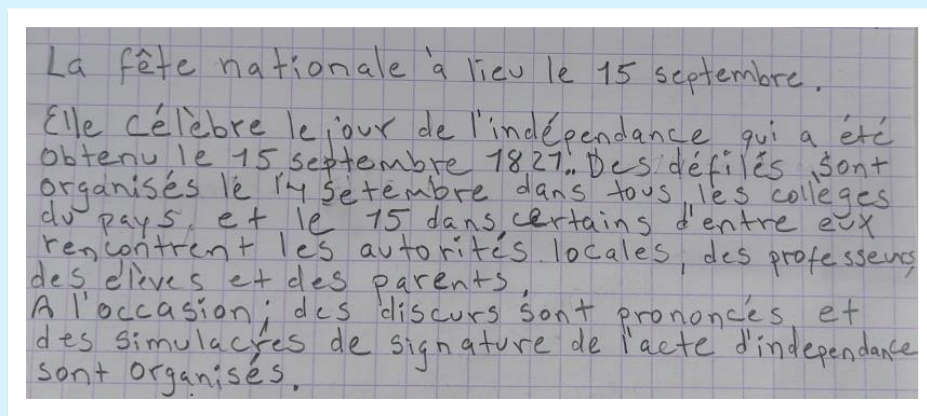 La fête nationale à lieu le 15 septembre.
Elle célèbre le jour de l'indépendance qui a été
obtenu le 15 septembre 1821. Des défilés sont
organisés le 14 setembre dans tous les collèges
du pays et le 15 dans certains d'entre eux
rencontrent les autorités locales, des professeurs,
des elèves et des parents,
A l'occasion; des discurs sont prononcés et
des simulacres de signature de l'acte d'independance
sont organisés.